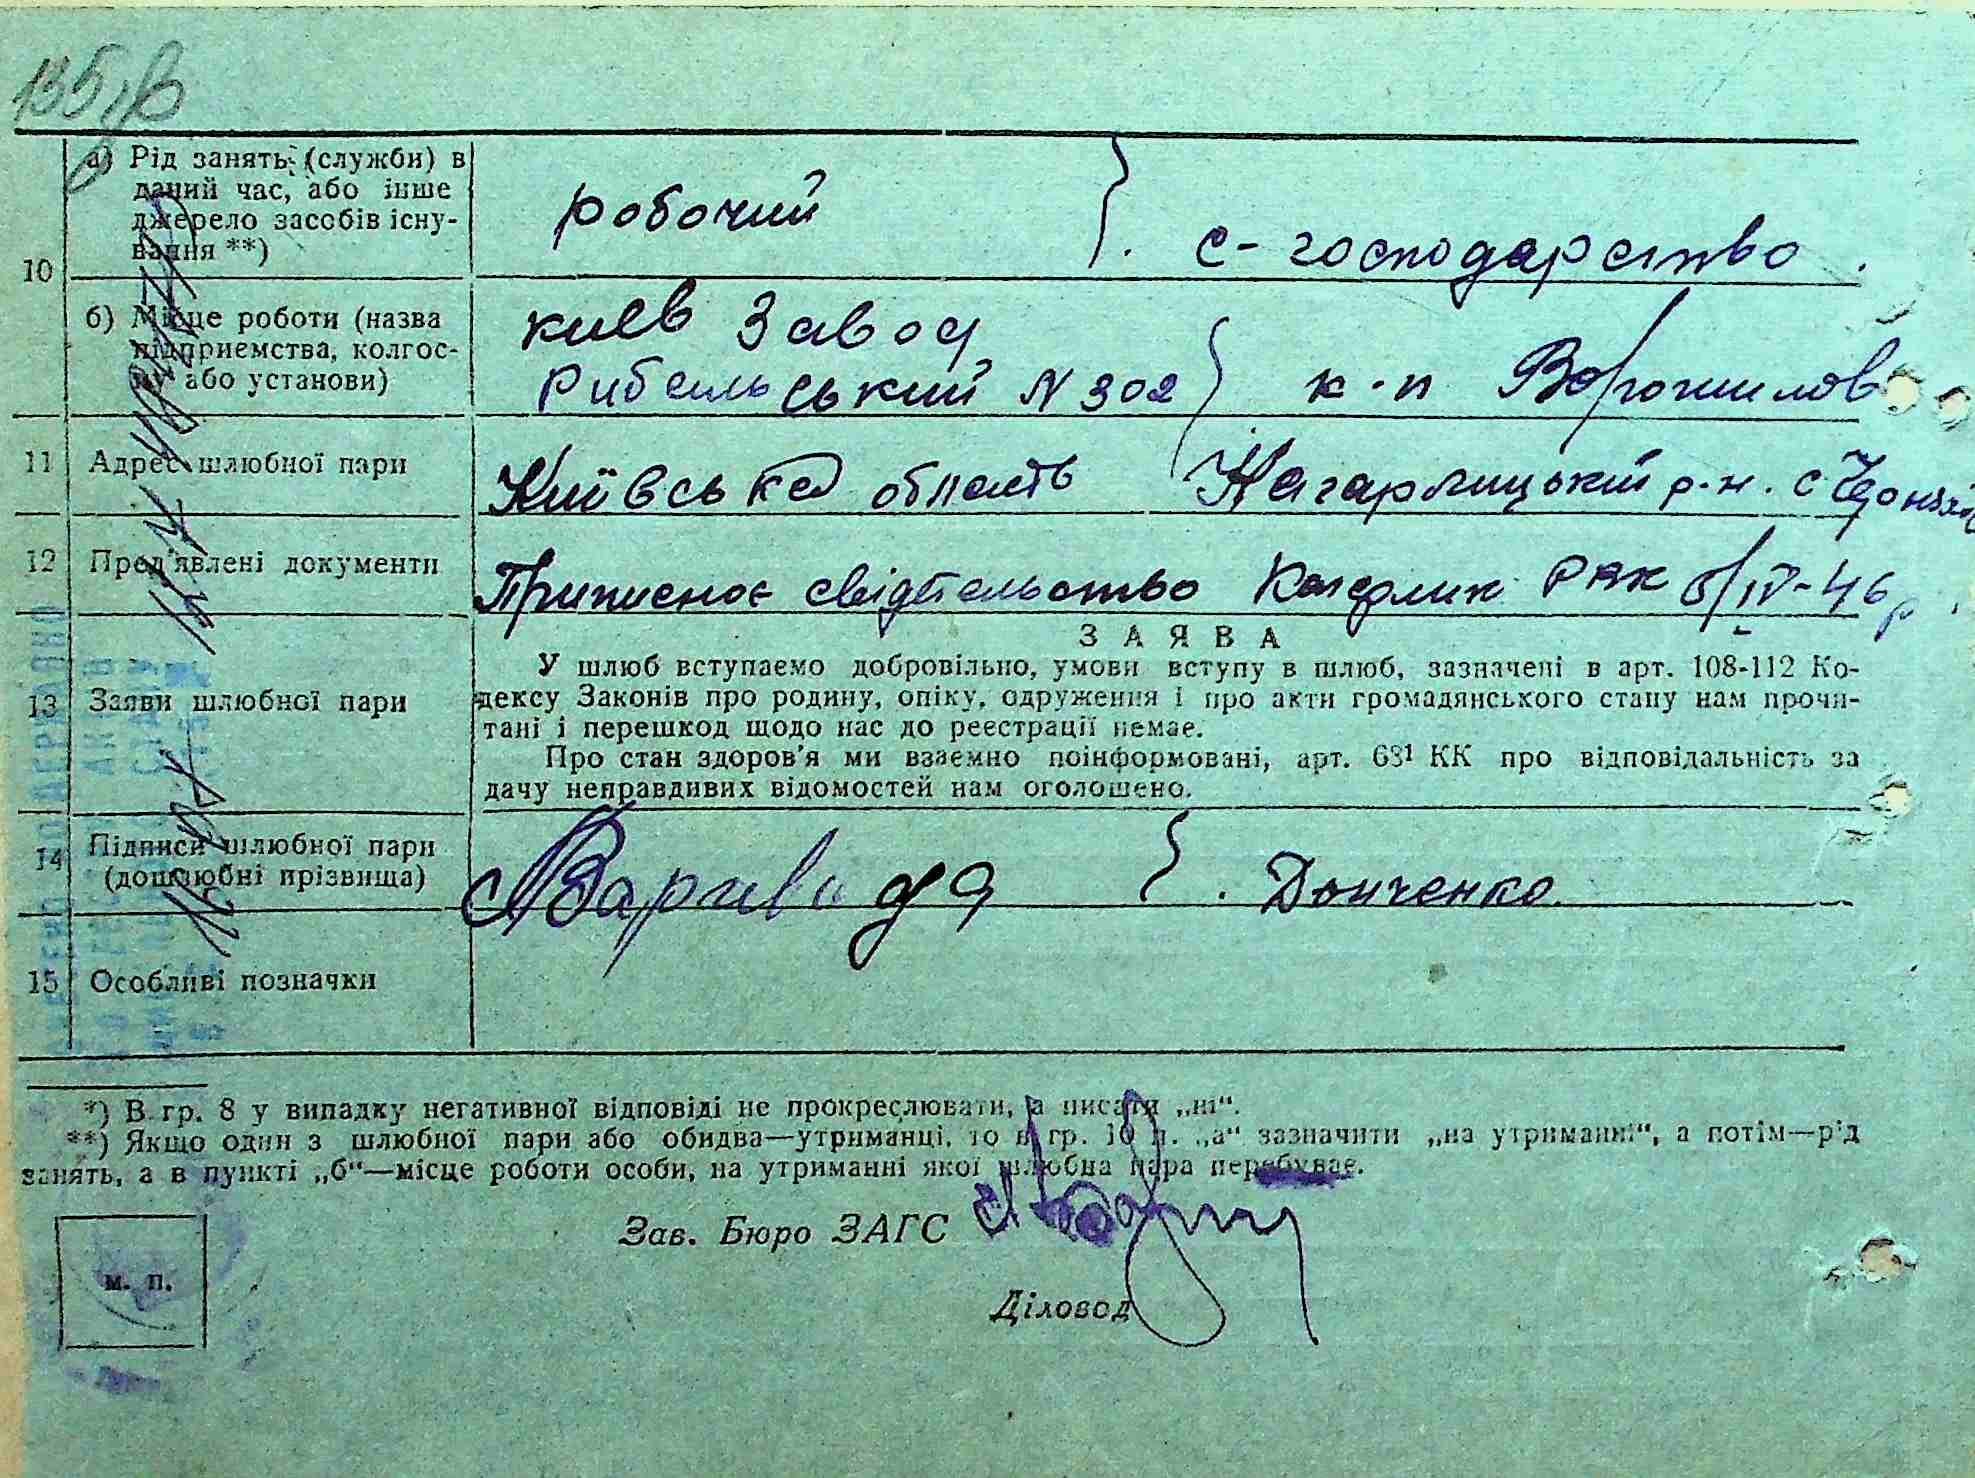 135
10
а) Рід занять (служби) в
даний час, або інше
джерело засобів існу-
вання **)
робочий
с-господарство.
б) Місце роботи (назва
підприємства, колгос-
пу або установи)
киев Завод
Рибальський N 302
к-п Ворошилов
11 Адрес шлюбної пари
Київська область Кагарлицький р-н. с
12 Пред'явлені документи
Приписноє свідітельство Кагарлик РВК 5/IV-46 р.
13 Заяви шлюбної пари
ЗАЯВА
У шлюб вступаємо добровільно, умови вступу в шлюб, зазначені в арт. 108-112 Ко-
дексу Законів про родину, опіку, одруження і про акти громадянського стану нам прочи-
тані і перешкод щодо нас до реєстрації немає.
Про стан здоров'я ми взаємно поінформовані, арт. 68¹ КК про відповідальність за
дачу неправдивих відомостей нам оголошено.
14 Підписи шлюбної пари
(дошлюбні прізвища)
Варивода
Донченко
15 Особливі позначки
*) В гр. 8 у випадку негативної відповіді не прокреслювати, а писати „ні“.
**) Якщо один з шлюбної пари або обидва—утриманці, то в гр. 10 п. „а“ зазначити „на утриманні“, а потім—рід
занять, а в пункті „б“—місце роботи особи, на утриманні якої шлюбна пара перебуває.
Зав. Бюро ЗАГС
м. п.
Діловод